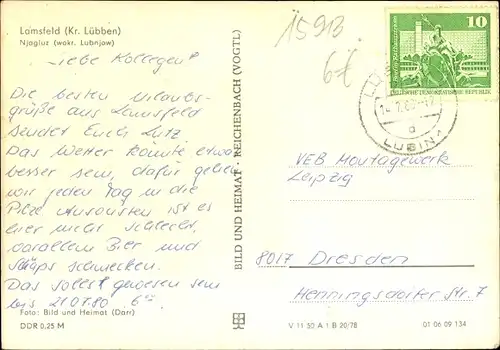 Lamsfeld (Kr. Lübben)
Njagluz (wokr. Lubnjow)
Liebe Kollegen!
Die besten Urlaubs-
grüße aus Lamsfeld
sendet Euch Lutz
Das Wetter könnte etwas
besser sein, dafür gehen
wir jeden Tag in die
Pilze. Ansonsten ist es
hier nicht schlecht,
vorallem Bier und
schmecken.
Das soll's gewesen sein
bis 21.07.80
Foto: Bild und Heimat (Darr)
DDR 0,25 M
BILD UND HEIMAT · REICHENBACH (VOGTL)
15913
10
DEUTSCHE DEMOKRATISCHE REPUBLIK
LUBIN
a
VEB Montagewerk
Leipzig
8017 Dresden
Henningsdorfer Str. 7
V 11 50 A 1 B 20/78
01 06 09 134